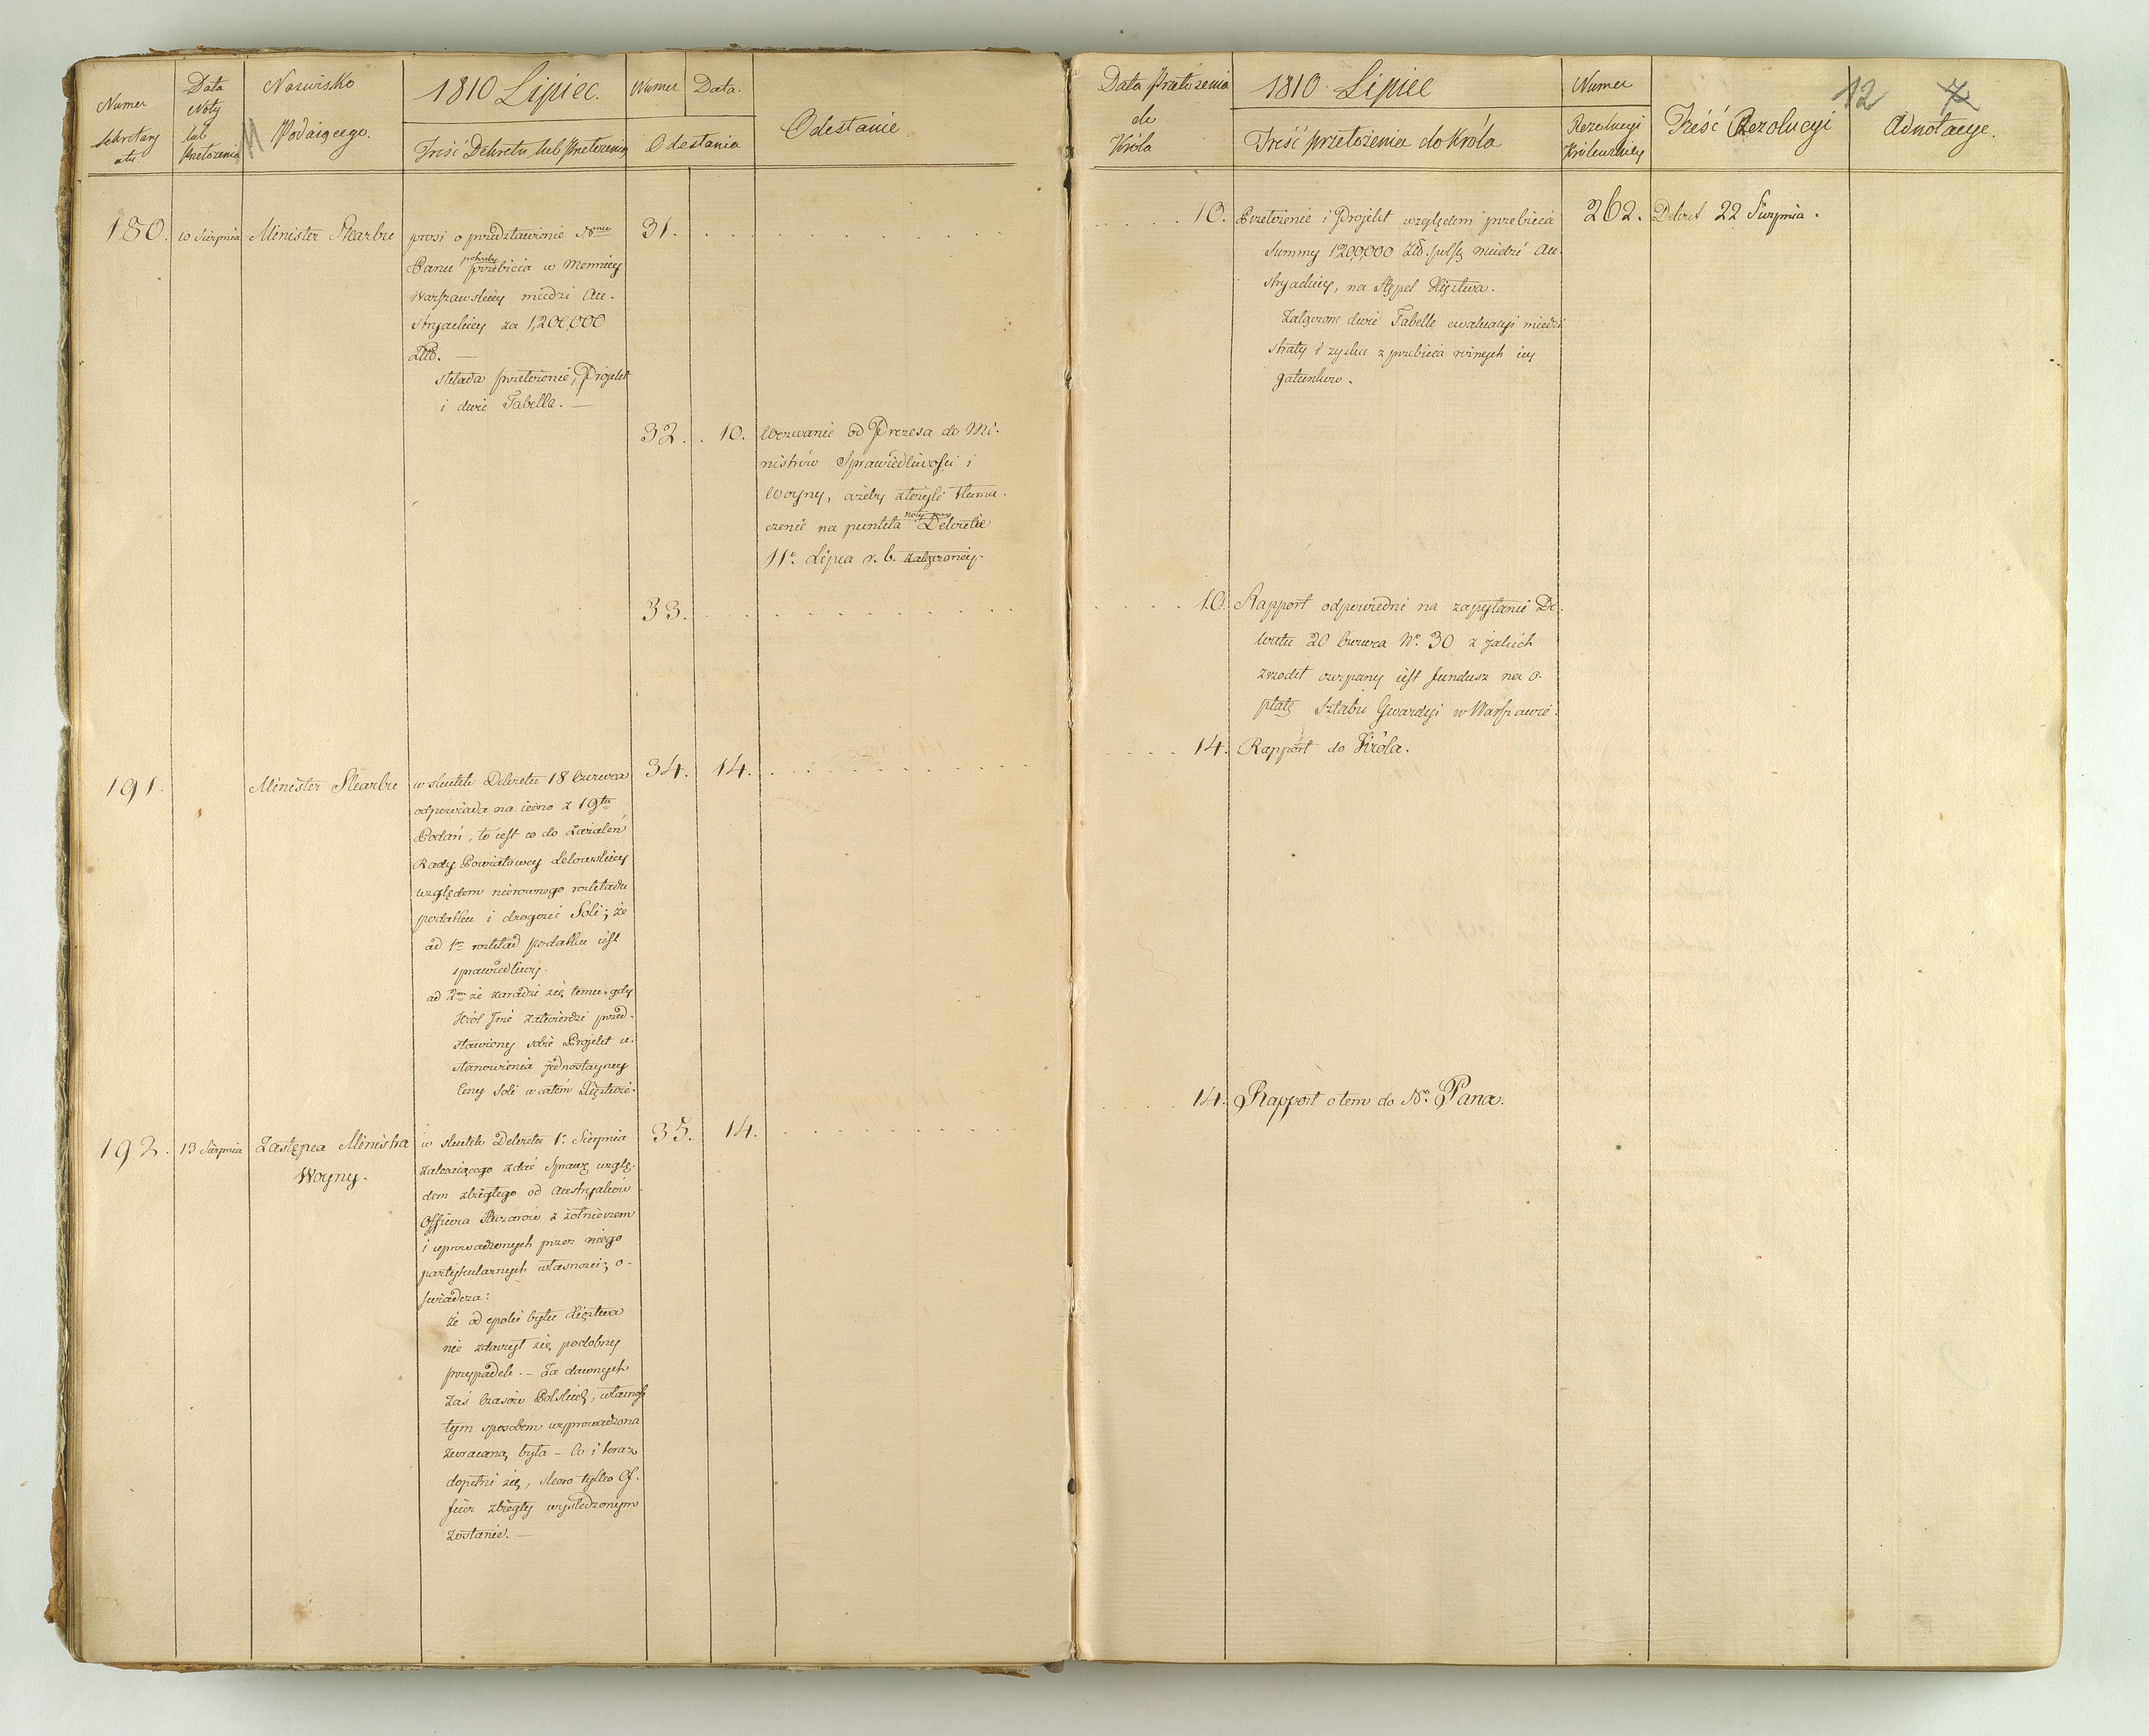 Numer
Sekretary
atu
Data
Noty
lub
Przełożenia
Nazwisko
Podaiącego.
11
1810 Lipiec.
Treść Dekretu, lub Przełożenia
Numer
Data.
Odesłania
Odesłanie
180.
10 Sierpnia
Minister Skarbu
prosi o przedstawienie Nmu
Panu potrzeby przebicia w Mennicy
Warszawskiey miedzi Au-
stryackiey za 1,200,000
Złł. —
składa przełożenie, Projekt
i dwie Tabella. —
31.
32.
10.
Wezwanie od Prezesa do Mi-
nistrów Sprawiedliwości i
Woyny, ażeby złożyli tłuma-
czenie na punkta noty przy Dekretie
11o Lipca r. b. załączoney.
33.
191.
Minister Skarbu
w skutek Dekretu 18 Czerwca
odpowiada na iedno z 19tu
Podań, to iest co do zażaleń
Rady Powiatowey Lelowskiey
względem nierownego rozkładu
podatku i drogości Soli; że
ad 1m rozkład podatku iest
sprawiedliwy.
ad 2m że zaradzi się temu, gdy
Król Jmć zatwierdzi przed-
stawiony sobie Projekt u-
stanowienia jednostayney
Ceny Soli w całem Xięstwie.
34.
14.
192.
13 Sierpnia
Zastępca Ministra
Woyny.
w skutek Dekretu 1o Sierpnia
zalecaiącego zdać sprawę wzglę-
dem zbiegłego od Austryaków
Officera Huzarów z żołnierzem
i uprowadzonych przez niego
partykularnych własności; o-
świadcza:
że od epoki bytu Xięstwa
nie zdarzył się podobny
przypadek. — Za dawnych
zaś Czasów Polskich, własność
tym sposobem wyprowadzona
zwracana była — Co i teraz
dopełni się, skoro tylko Of-
ficer zbiegły wyśledzonym
zostanie. —
35.
14.
Data Przełożenia
do
Króla
1810 Lipiec
Treść przełożenia do Króla
Numer
Rezolucyi
Królewskiey
Treść Rezolucyi
12
7
Adnotacye.
10.
Przełożenie i Projekt względem przebicia
Summy 1200,000 Zło. pols. miedzi Au-
stryackiey, na Stępel Xięstwa.
Załączone dwie Tabelle ewaluacyi miedzi
straty i zysku z przebicia różnych iey
gatunków.
262.
Dekret 22 Sierpnia.
10.
Rapport odpowiedni na zapytanie De-
kretu 20 Czerwca No. 30 z jakich
zrzodeł czerpany iest fundusz na o-
płatę Sztabu Gwardyi w Warszawie.
14.
Rapport do Króla.
14.
Rapport o tem do No. Pana.